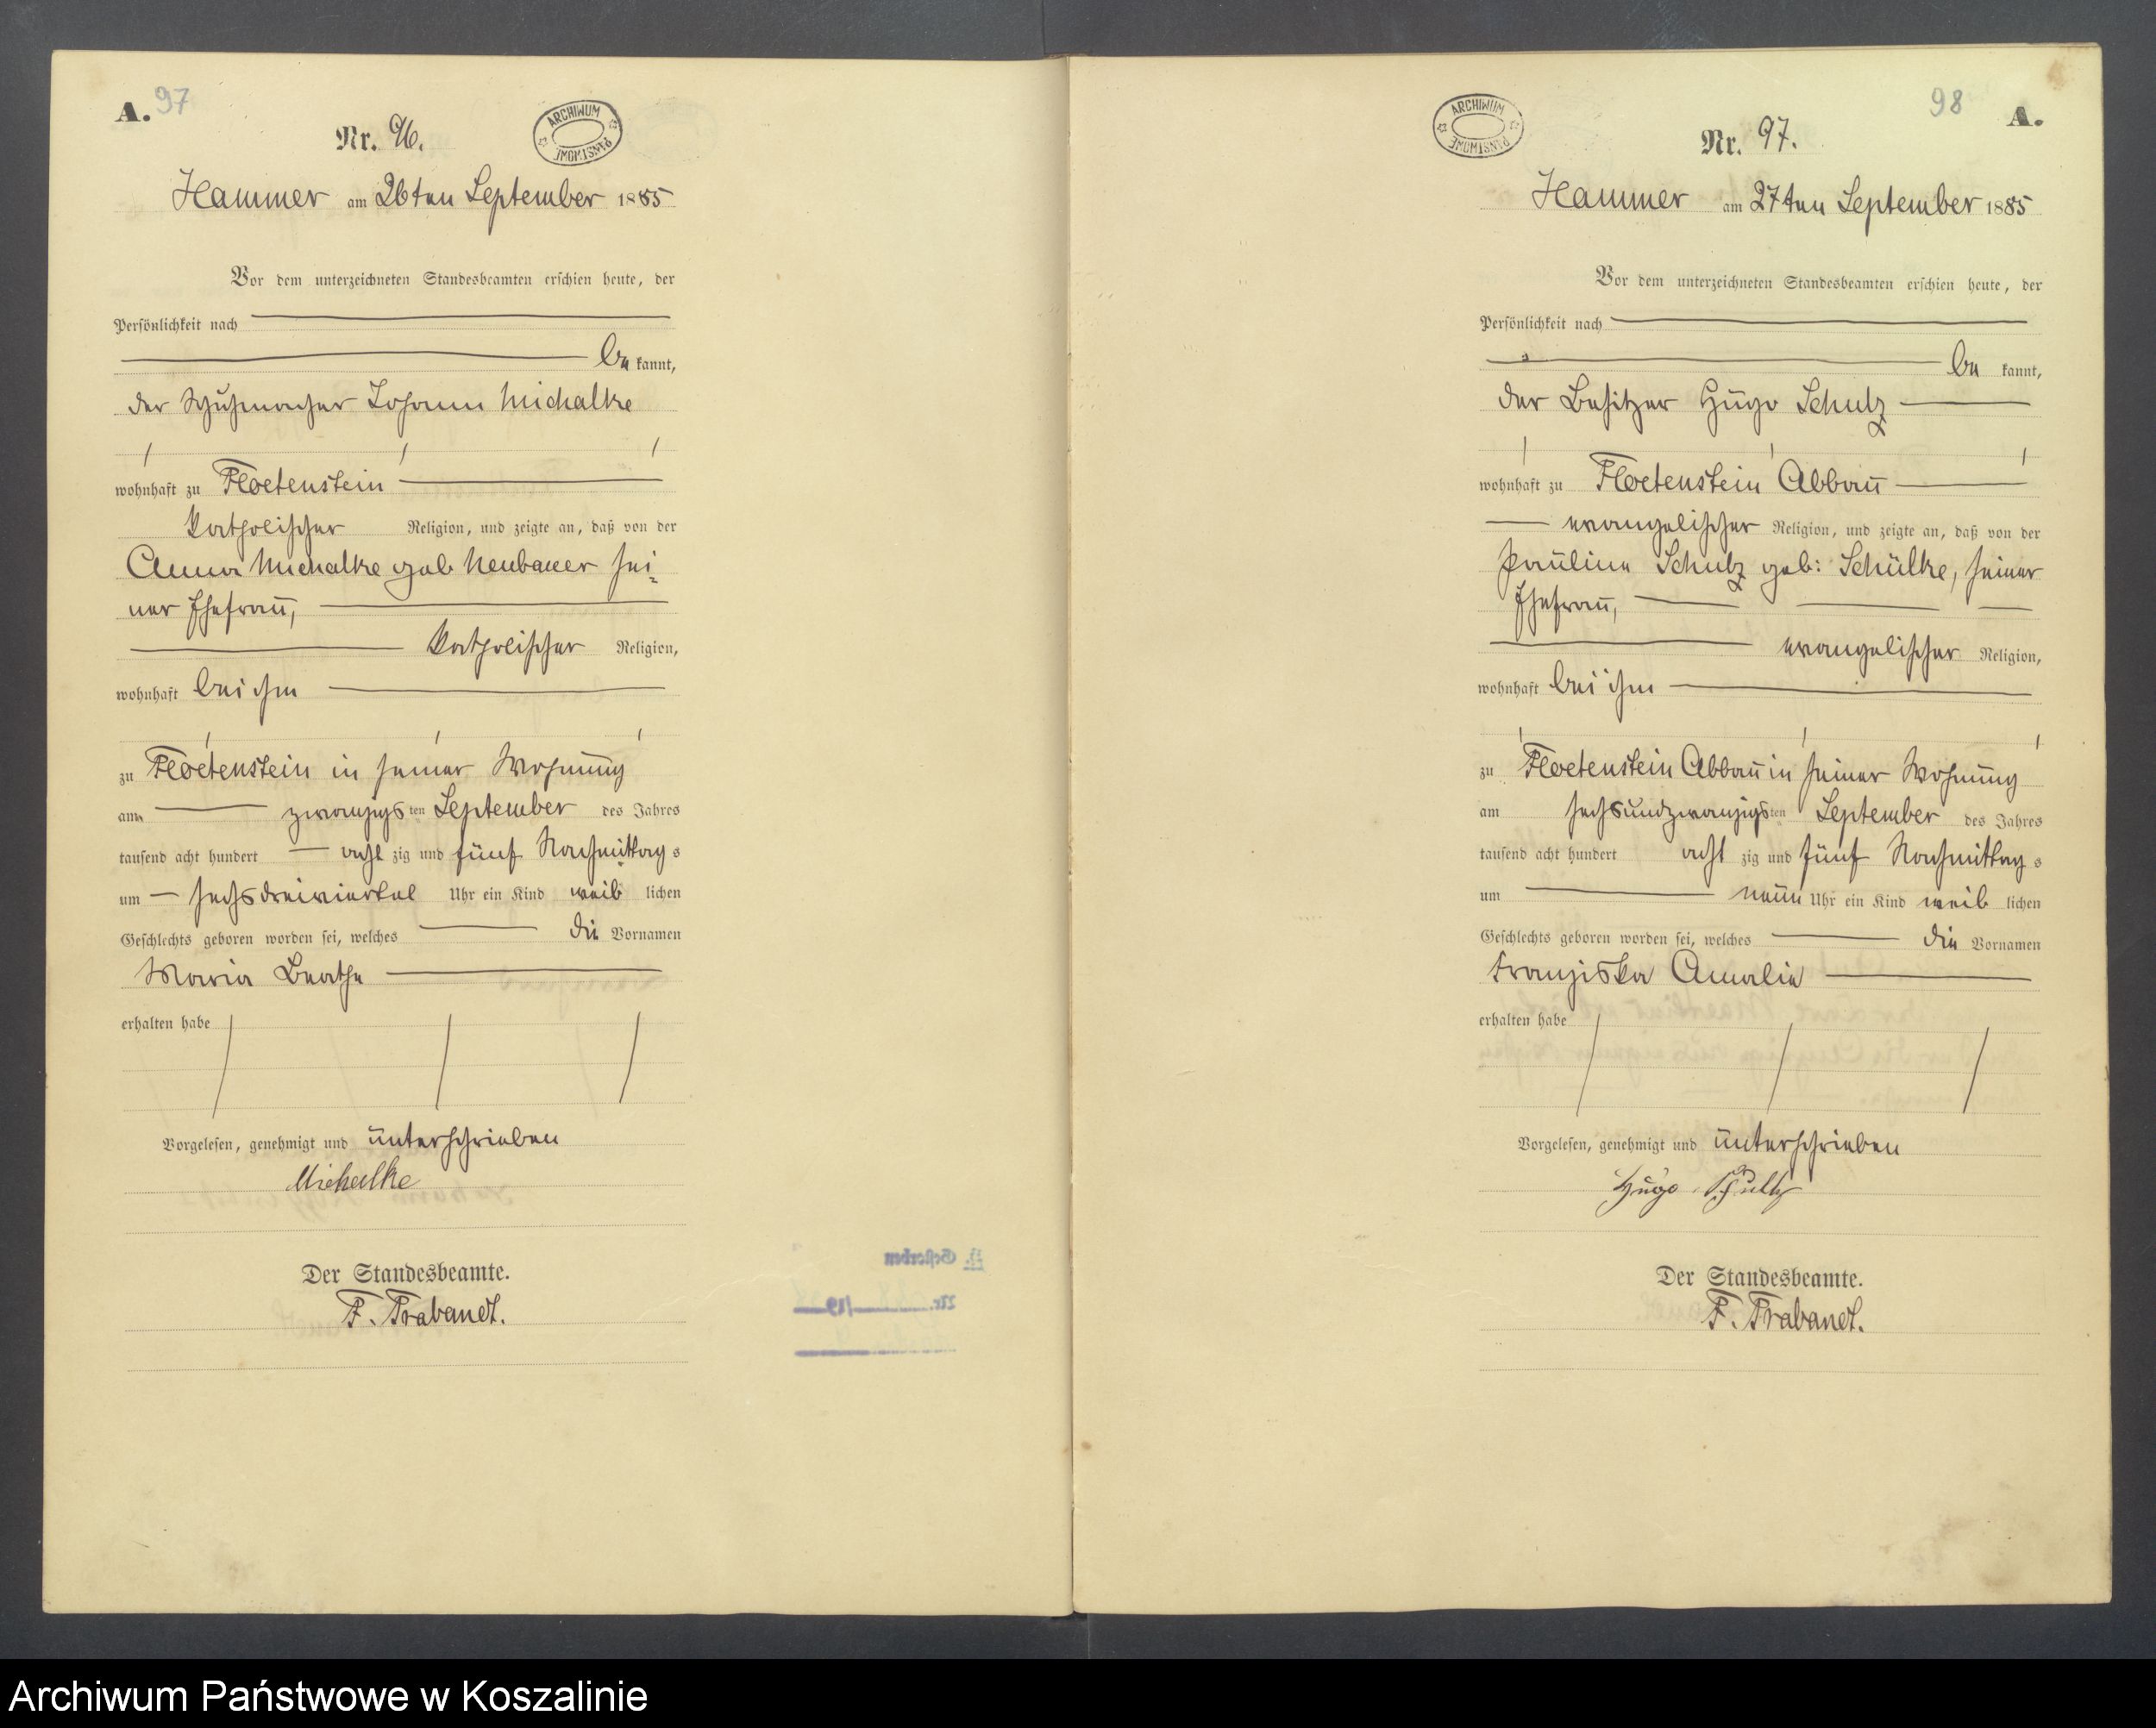 A. 97
ARCHIWUM PAŃSTWOWE
Nr. 96.
Hammer am 26ten September 1885
Vor dem unterzeichneten Standesbeamten erschien heute, der
Persönlichkeit nach
be kannt,
der Schuhmacher Johann Michalke
wohnhaft zu Floetenstein
katholischer Religion, und zeigte an, daß von der
Anna Michalke geb Neubauer sei-
ner Ehefrau,
katholischer Religion,
wohnhaft bei ihm
zu Floetenstein in seiner Wohnung
am zwanzigsten September des Jahres
tausend acht hundert acht zig und fünf Nachmittags
um sechsdreiviertel Uhr ein Kind weib lichen
Geschlechts geboren worden sei, welches die Vornamen
Maria Beathe
erhalten habe
Vorgelesen, genehmigt und unterschrieben
Michalke
Der Standesbeamte.
F. Trabandt.
Gestorben
Nr. /19
98 A.
ARCHIWUM PAŃSTWOWE
Nr. 97.
Hammer am 27ten September 1885
Vor dem unterzeichneten Standesbeamten erschien heute, der
Persönlichkeit nach
be kannt,
der Besitzer Hugo Schulz
wohnhaft zu Floetenstein Abbau
evangelischer Religion, und zeigte an, daß von der
Pauline Schulz geb: Schülke, seiner
Ehefrau,
evangelischer Religion,
wohnhaft bei ihm
zu Floetenstein Abbau in seiner Wohnung
am sechsundzwanzigsten September des Jahres
tausend acht hundert acht zig und fünf Nachmittags
um neun Uhr ein Kind weib lichen
Geschlechts geboren worden sei, welches die Vornamen
Franziska Amalie
erhalten habe
Vorgelesen, genehmigt und unterschrieben
Hugo Schulz
Der Standesbeamte.
F. Trabandt.
Archiwum Państwowe w Koszalinie